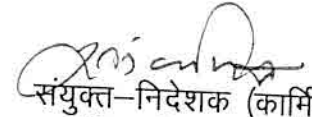 संयुक्त–निदेशक (कार्मि